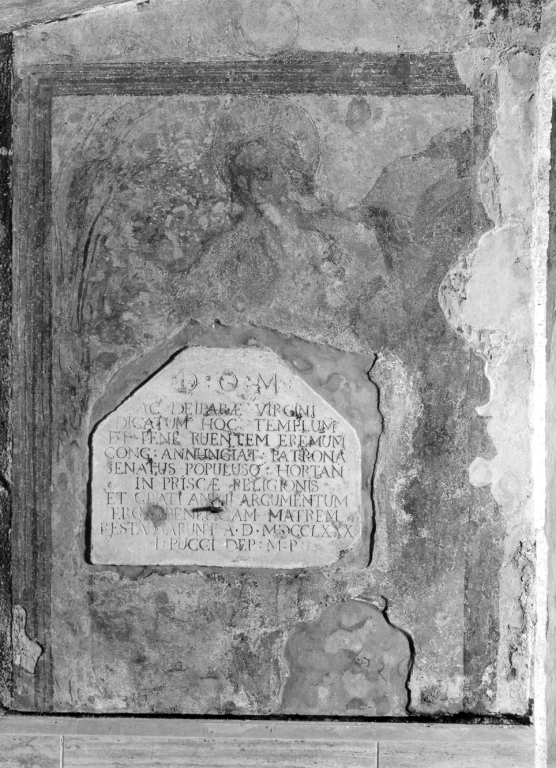 D · O · M
AC DEIPARÆ VIRGINI
DICATUM HOC TEMPLUM
ET PENE RUENTEM EREMUM
CONG · ANNUNCIAT · PATRONA
SENATUS POPULUSQ · HORTAN
IN PRISCÆ RELIGIONIS
ET GRATI ANIMI ARGUMENTUM
ERGA MATREM
RESTAURARUNT A · D · MDCCLXXX
I · PUCCI DEP · M · P ·